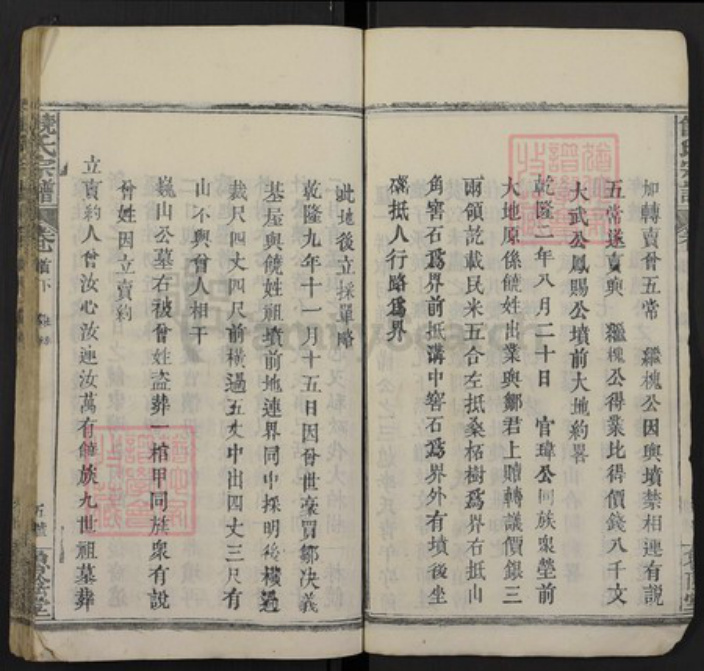 加轉賣曾五常 繼槐公因與墳禁相連有說
五常遂賣與 繼槐公得業比得價錢八千文
大武公鳳賜公墳前大地約畧
乾隆二年八月二十日 官瑋公同族衆墊前
大地原係饒姓出業與鄒君上贖轉議價銀三
兩領訖載民米五合左抵桑柘樹爲界右抵山
角窖石爲界前抵溝中窖石爲界外有墳後坐
磡抵人行路爲界
此地後立採單略
乾隆九年十一月十五日因曾世豪買鄒决義
基屋與饒姓祖墳前地連界同中採明後橫過
裁尺四丈四尺前橫過五丈中出四丈三尺有
山不與曾人相干
巍山公墓右被曾姓盜葬一棺甲同族衆有說
曾姓因立賣約
立賣約人曾汝心汝連汝萬有饒族九世祖墓葬
饒氏宗譜
首下